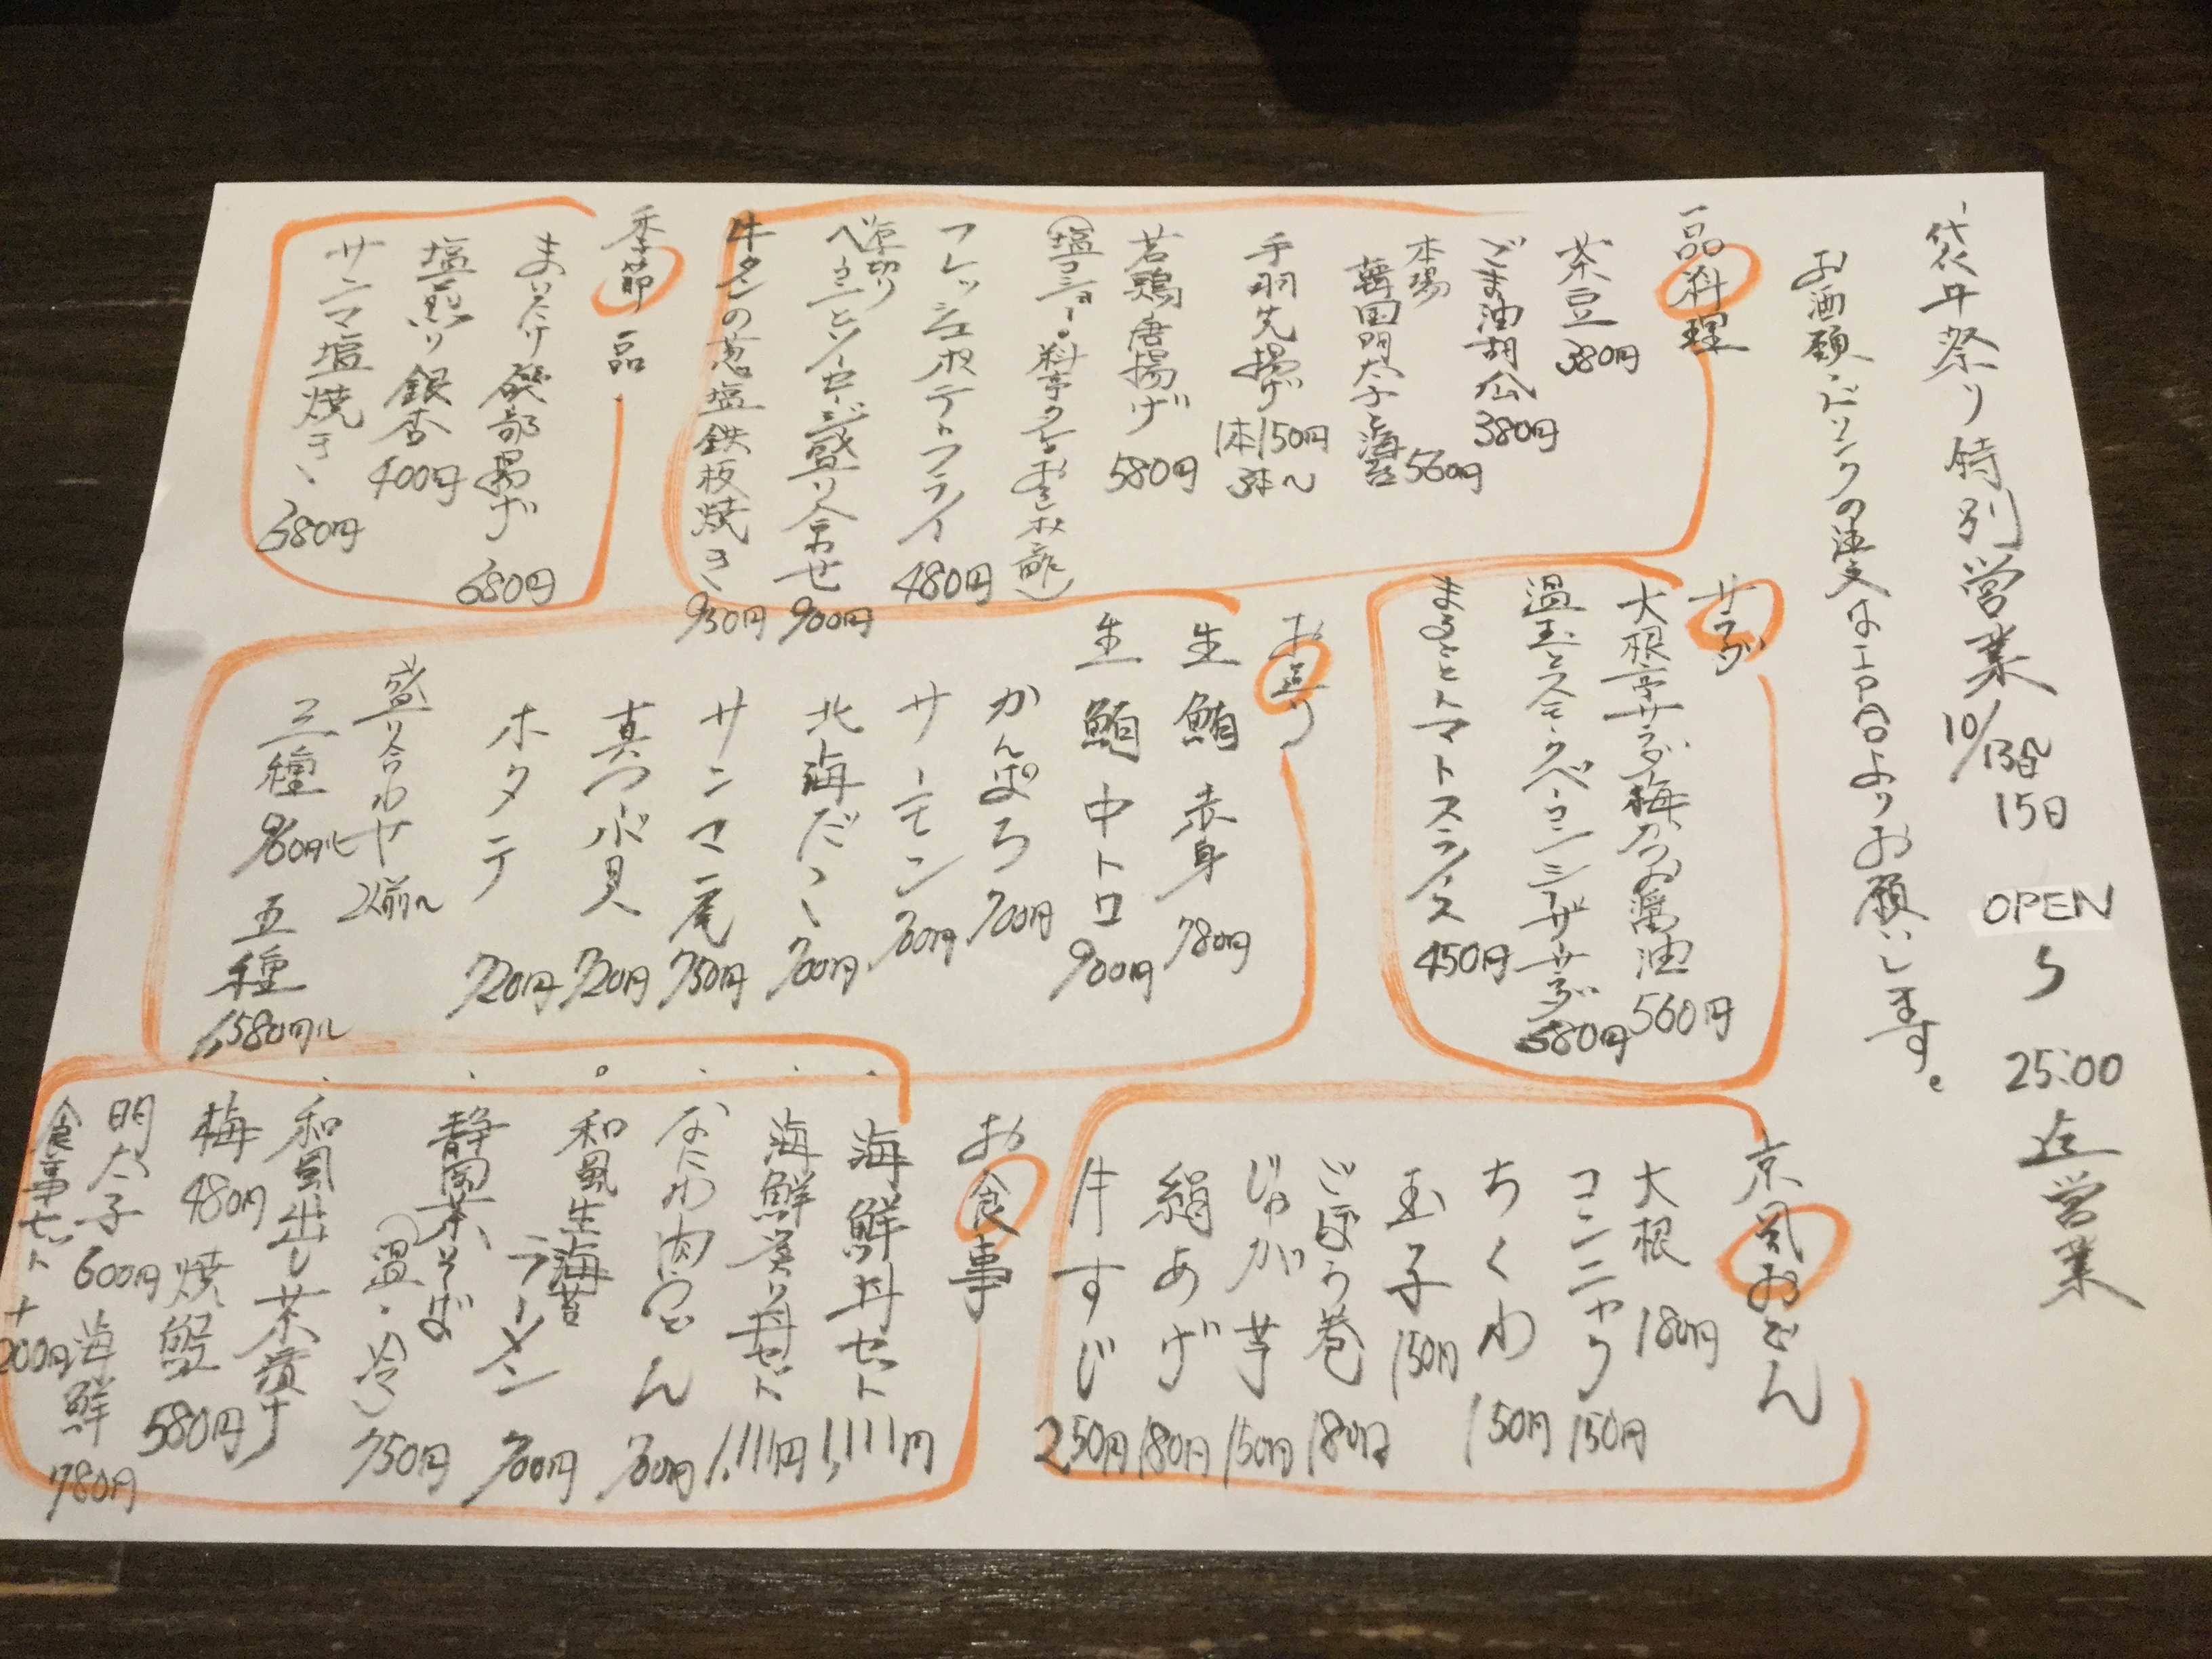 祭り特別営業 10/13日 15日 OPEN 5 25:00 迄営業
お酒類・ドリンクの注文はよりお願いします。
一品料理
茶豆 380円
ごま油胡瓜 380円
本場
韓国明太子と海苔 560円
手羽先揚げ 1本150円 3本〜
若鶏唐揚げ 580円
フレッシュポテトフライ 480円
厚切り
ベーコンとソーセージ盛り合わせ 900円
牛タンの葱塩鉄板焼き 950円
季節一品
まいたけ磯部揚げ 680円
塩煎り銀杏 400円
サンマ塩焼き 680円
サラダ
大根亭サラダ梅かつお醤油 560円
温玉とスモークベーコンシーザーサラダ 580円
まるごとトマトスライス 450円
お造り
生鮪赤身 780円
生鮪中トロ 900円
かんぱち 700円
サーモン 700円
北海だこ 700円
サンマ一尾 750円
真つぶ貝 720円
ホタテ 720円
盛り合わせ 2人前〜
三種 960円〜 五種 1,580円〜
京風おでん
大根 180円
コンニャク 150円
ちくわ 150円
玉子 150円
ごぼう巻 180円
じゃが芋 150円
絹あげ 180円
牛すじ 250円
お食事
海鮮丼セット 1,111円
海鮮炙り丼セット 1,111円
なにわ肉うどん 700円
和風生海苔ラーメン 700円
静岡茶そば (温・冷) 750円
和風出し茶漬け
梅 480円 焼鮭 580円
明太子 600円 海鮮 780円
食事セット +200円